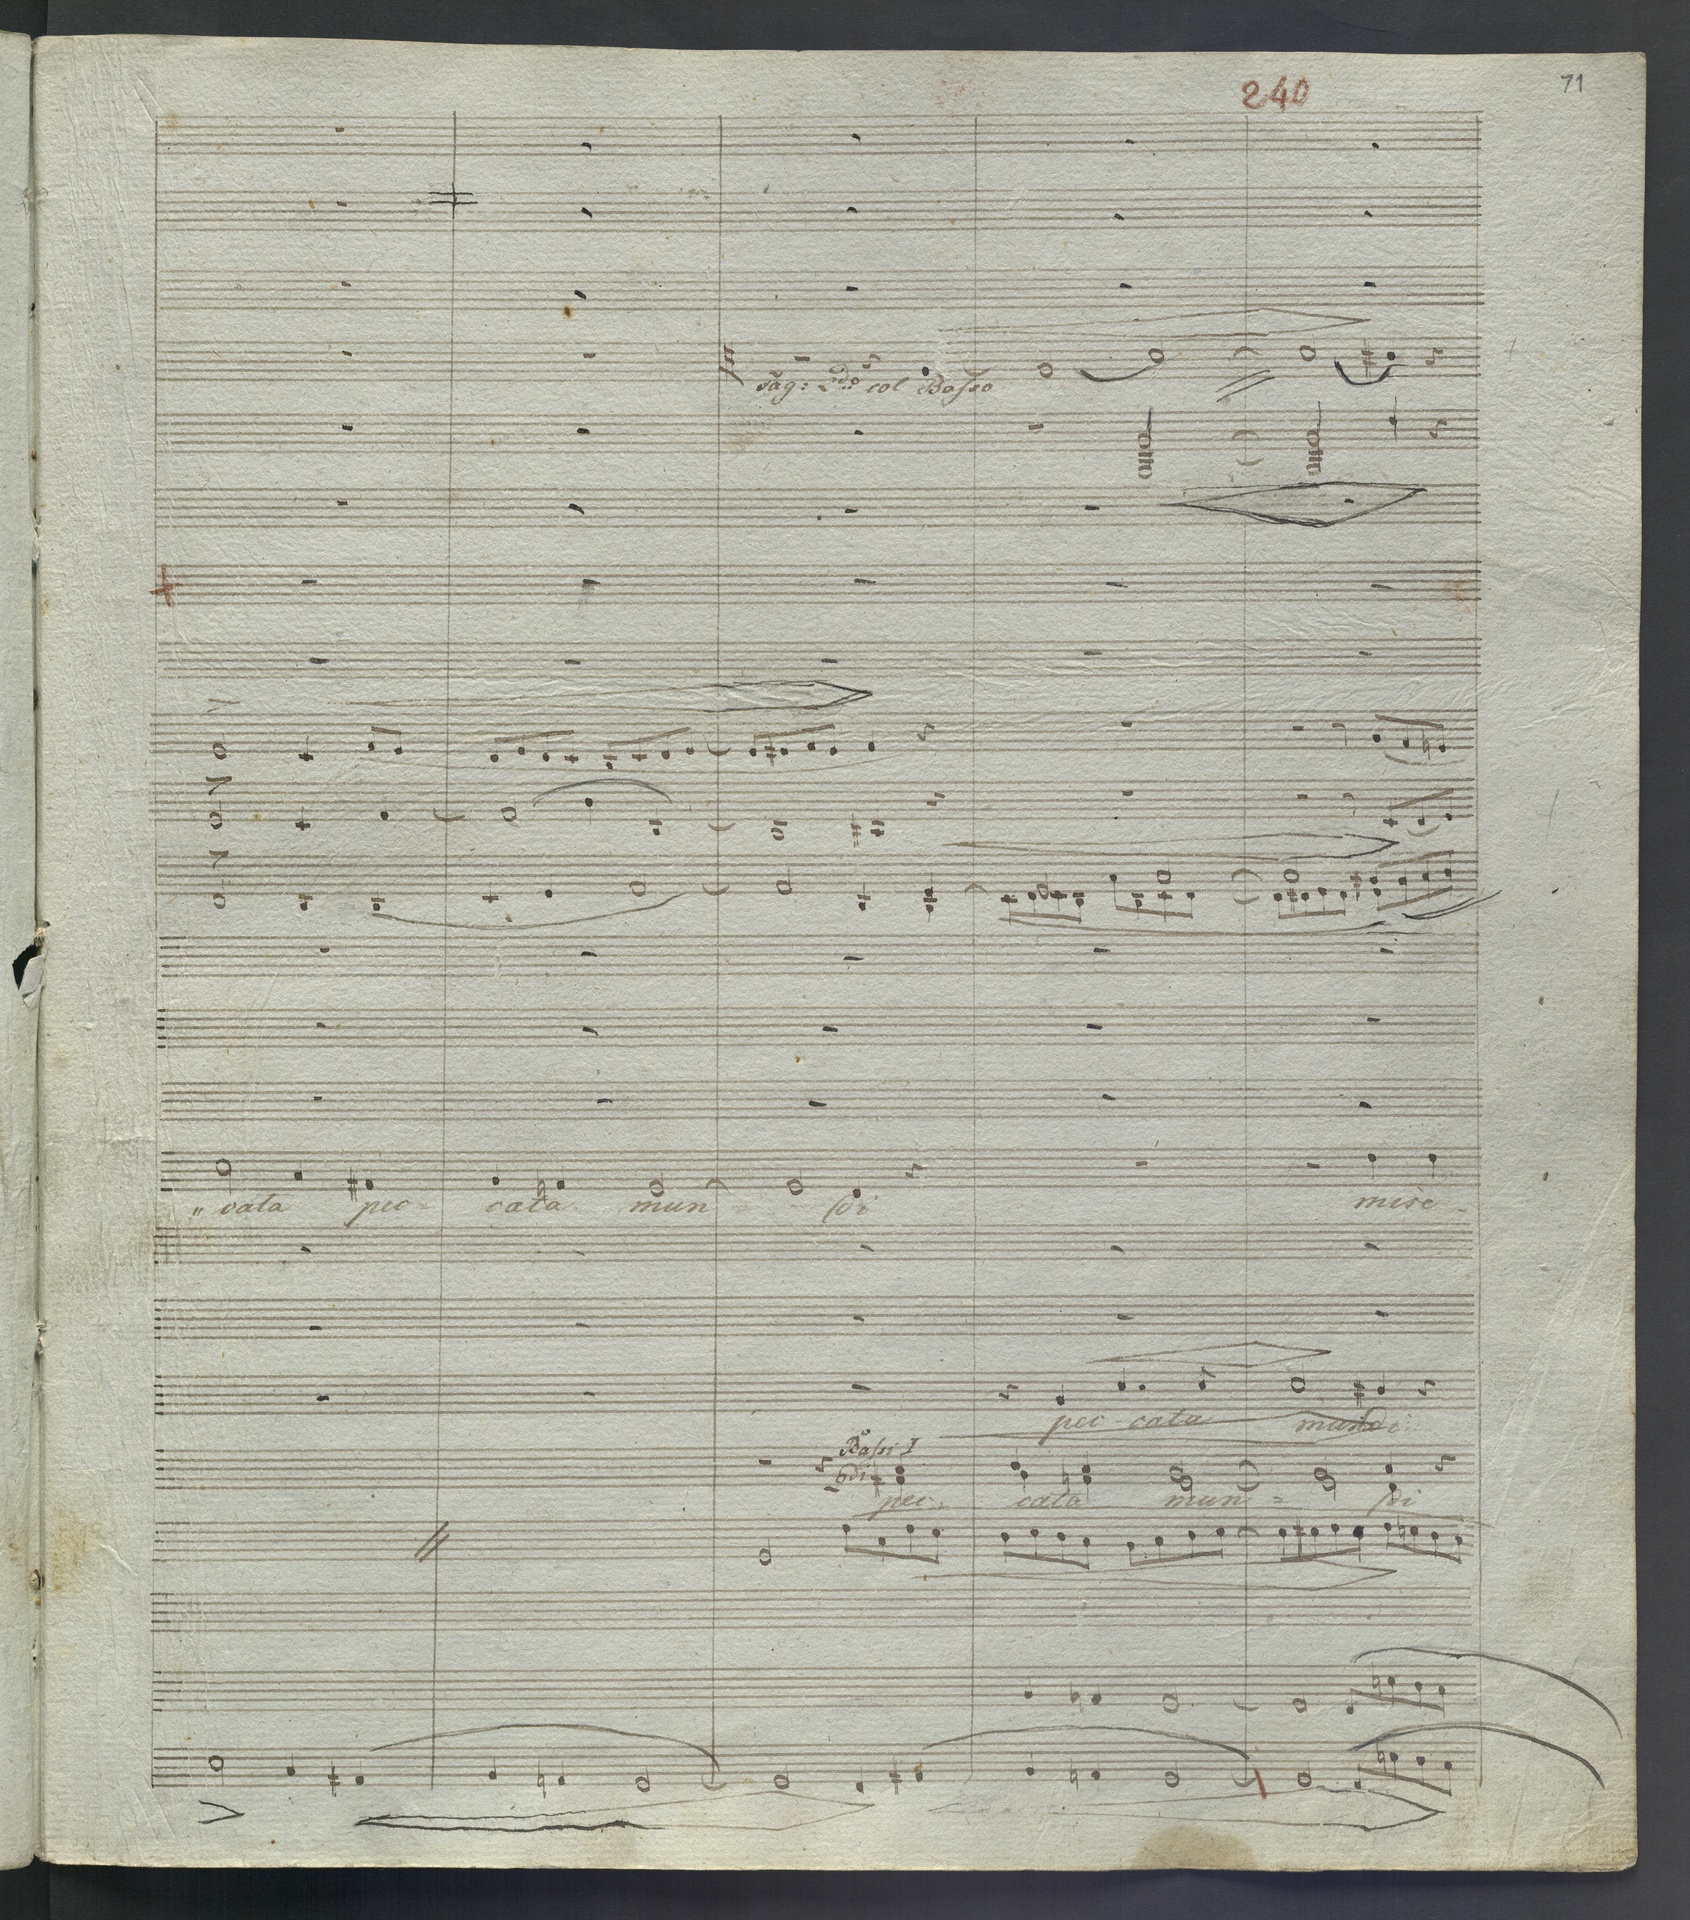 240
71
Fag: 2do col Basso
" cata pec - cata mun di mise -
pec cata mundi
Bassi I
pec - cata mun = di